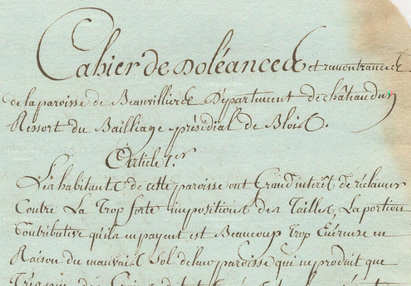 Cahier de Doléances et remontrances
de la paroisse de Beauvilliers Département de châteaudun
Ressort du Bailliage présidial de Blois.
Article 1.er
Les habitants de cette paroisse ont Grand interêt de réclamer
Contre La Trop forte impositions des Tailles, La portion
Contributive qu'ils en payent est Beaucoup Trop Exéreuse en
Raison du mauvais sol de leur paroisse qui ne produit que